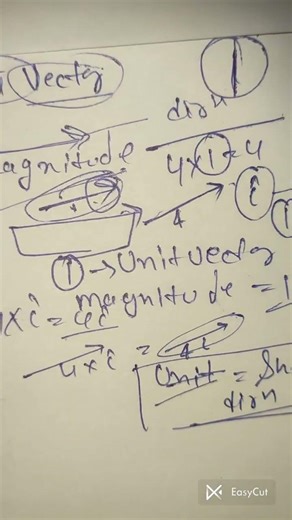 Vector
dirⁿ
magnitude
4×1=4
4
î
î → Unit vector
magnitude = 1
4×î = 4î
4×î = 4î
Unit = Sh
dirⁿ
EasyCut